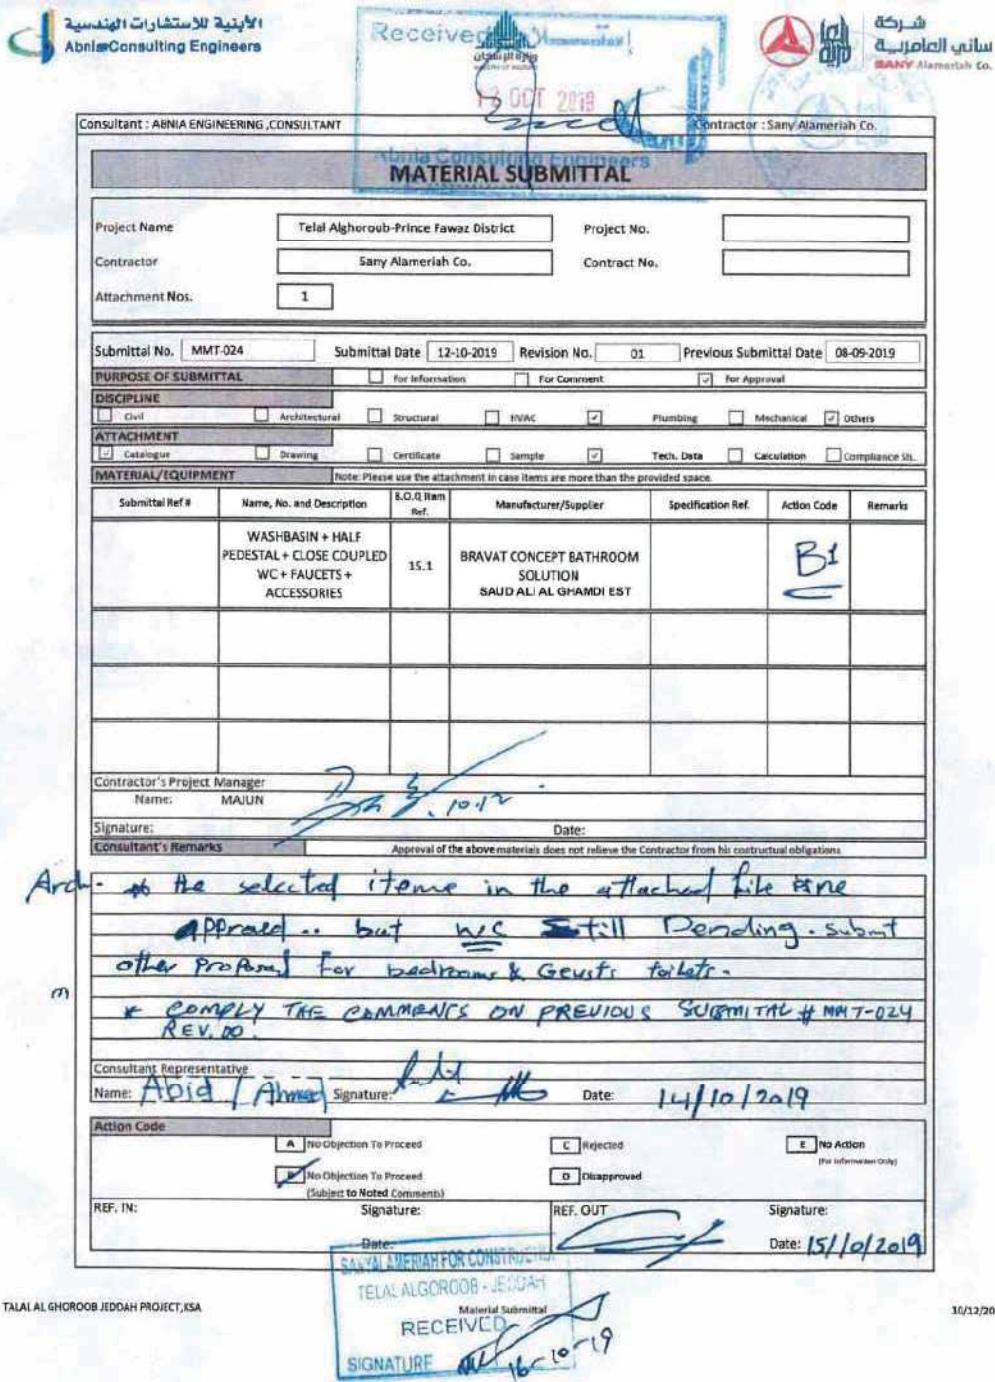 الأبنية للاستشارات الهندسية
Abnia Consulting Engineers
Received
وزارة الإسكان
OCT 2019
Abnia Consulting Engineers
شركة
ساني العامرية
SANY Alameriah Co.
Consultant : ABNIA ENGINEERING ,CONSULTANT
Contractor : Sany Alameriah Co.
MATERIAL SUBMITTAL
Project Name Telal Alghoroub-Prince Fawaz District Project No.
Contractor Sany Alameriah Co. Contract No.
Attachment Nos. 1
Submittal No. MMT-024 Submittal Date 12-10-2019 Revision No. 01 Previous Submittal Date 08-09-2019
PURPOSE OF SUBMITTAL For Information For Comment For Approval
DISCIPLINE
Civil Architectural Structural HVAC Plumbing Mechanical Others
ATTACHMENT
Catalogue Drawing Certificate Sample Tech. Data Calculation Compliance Sh.
MATERIAL/EQUIPMENT Note: Please use the attachment in case items are more than the provided space.
Submittal Ref # Name, No. and Description B.O.Q Item Ref. Manufacturer/Supplier Specification Ref. Action Code Remarks
WASHBASIN + HALF
PEDESTAL + CLOSE COUPLED
WC + FAUCETS +
ACCESSORIES
15.1
BRAVAT CONCEPT BATHROOM
SOLUTION
SAUD ALI AL GHAMDI EST
B1
Contractor's Project Manager
Name: MAJUN
10.12
Signature: Date:
Consultant's Remarks Approval of the above materials does not relieve the Contractor from his contructual obligations
Arch - the selected iteme in the attached file
but WC Still Pending. submt
other for bedrooms & Geusts toilets.
* COMPLY THE COMMENTS ON PREVIOUS SUBMITAL # MMT-024
REV. 00.
Consultant Representative
Name: Abid / Ahmed Signature: Date: 14/10/2019
Action Code
A No Objection To Proceed C Rejected E No Action
(For Information Only)
B No Objection To Proceed D Disapproved
(Subject to Noted Comments)
REF. IN: Signature: REF. OUT Signature:
Date: Date: 15/10/2019
SANYALAMERIAH FOR CONSTRUCTION
TELAL ALGOROOB - JEDDAH
Material Submittal
RECEIVED
SIGNATURE 16-10-19
TALAL AL GHOROOB JEDDAH PROJECT,KSA
10/12/20